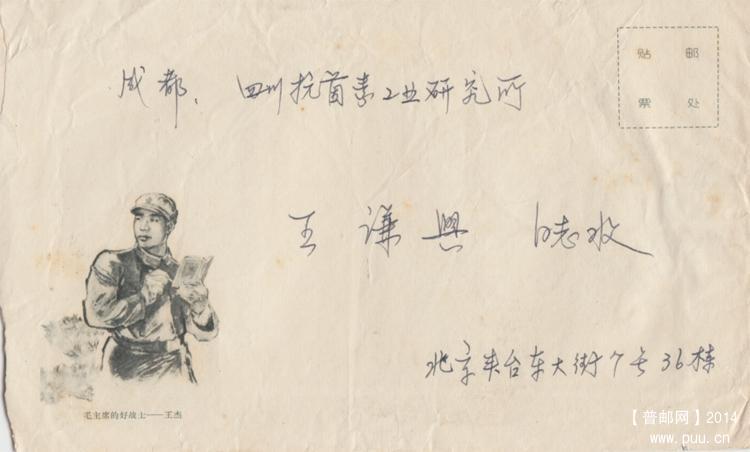 贴 邮
票 处
成都、四川抗菌素工业研究所
王谦兴 同志收
北京丰台东大街7号36栋
毛主席的好战士——王杰
【普邮网】2014
www.puu.cn